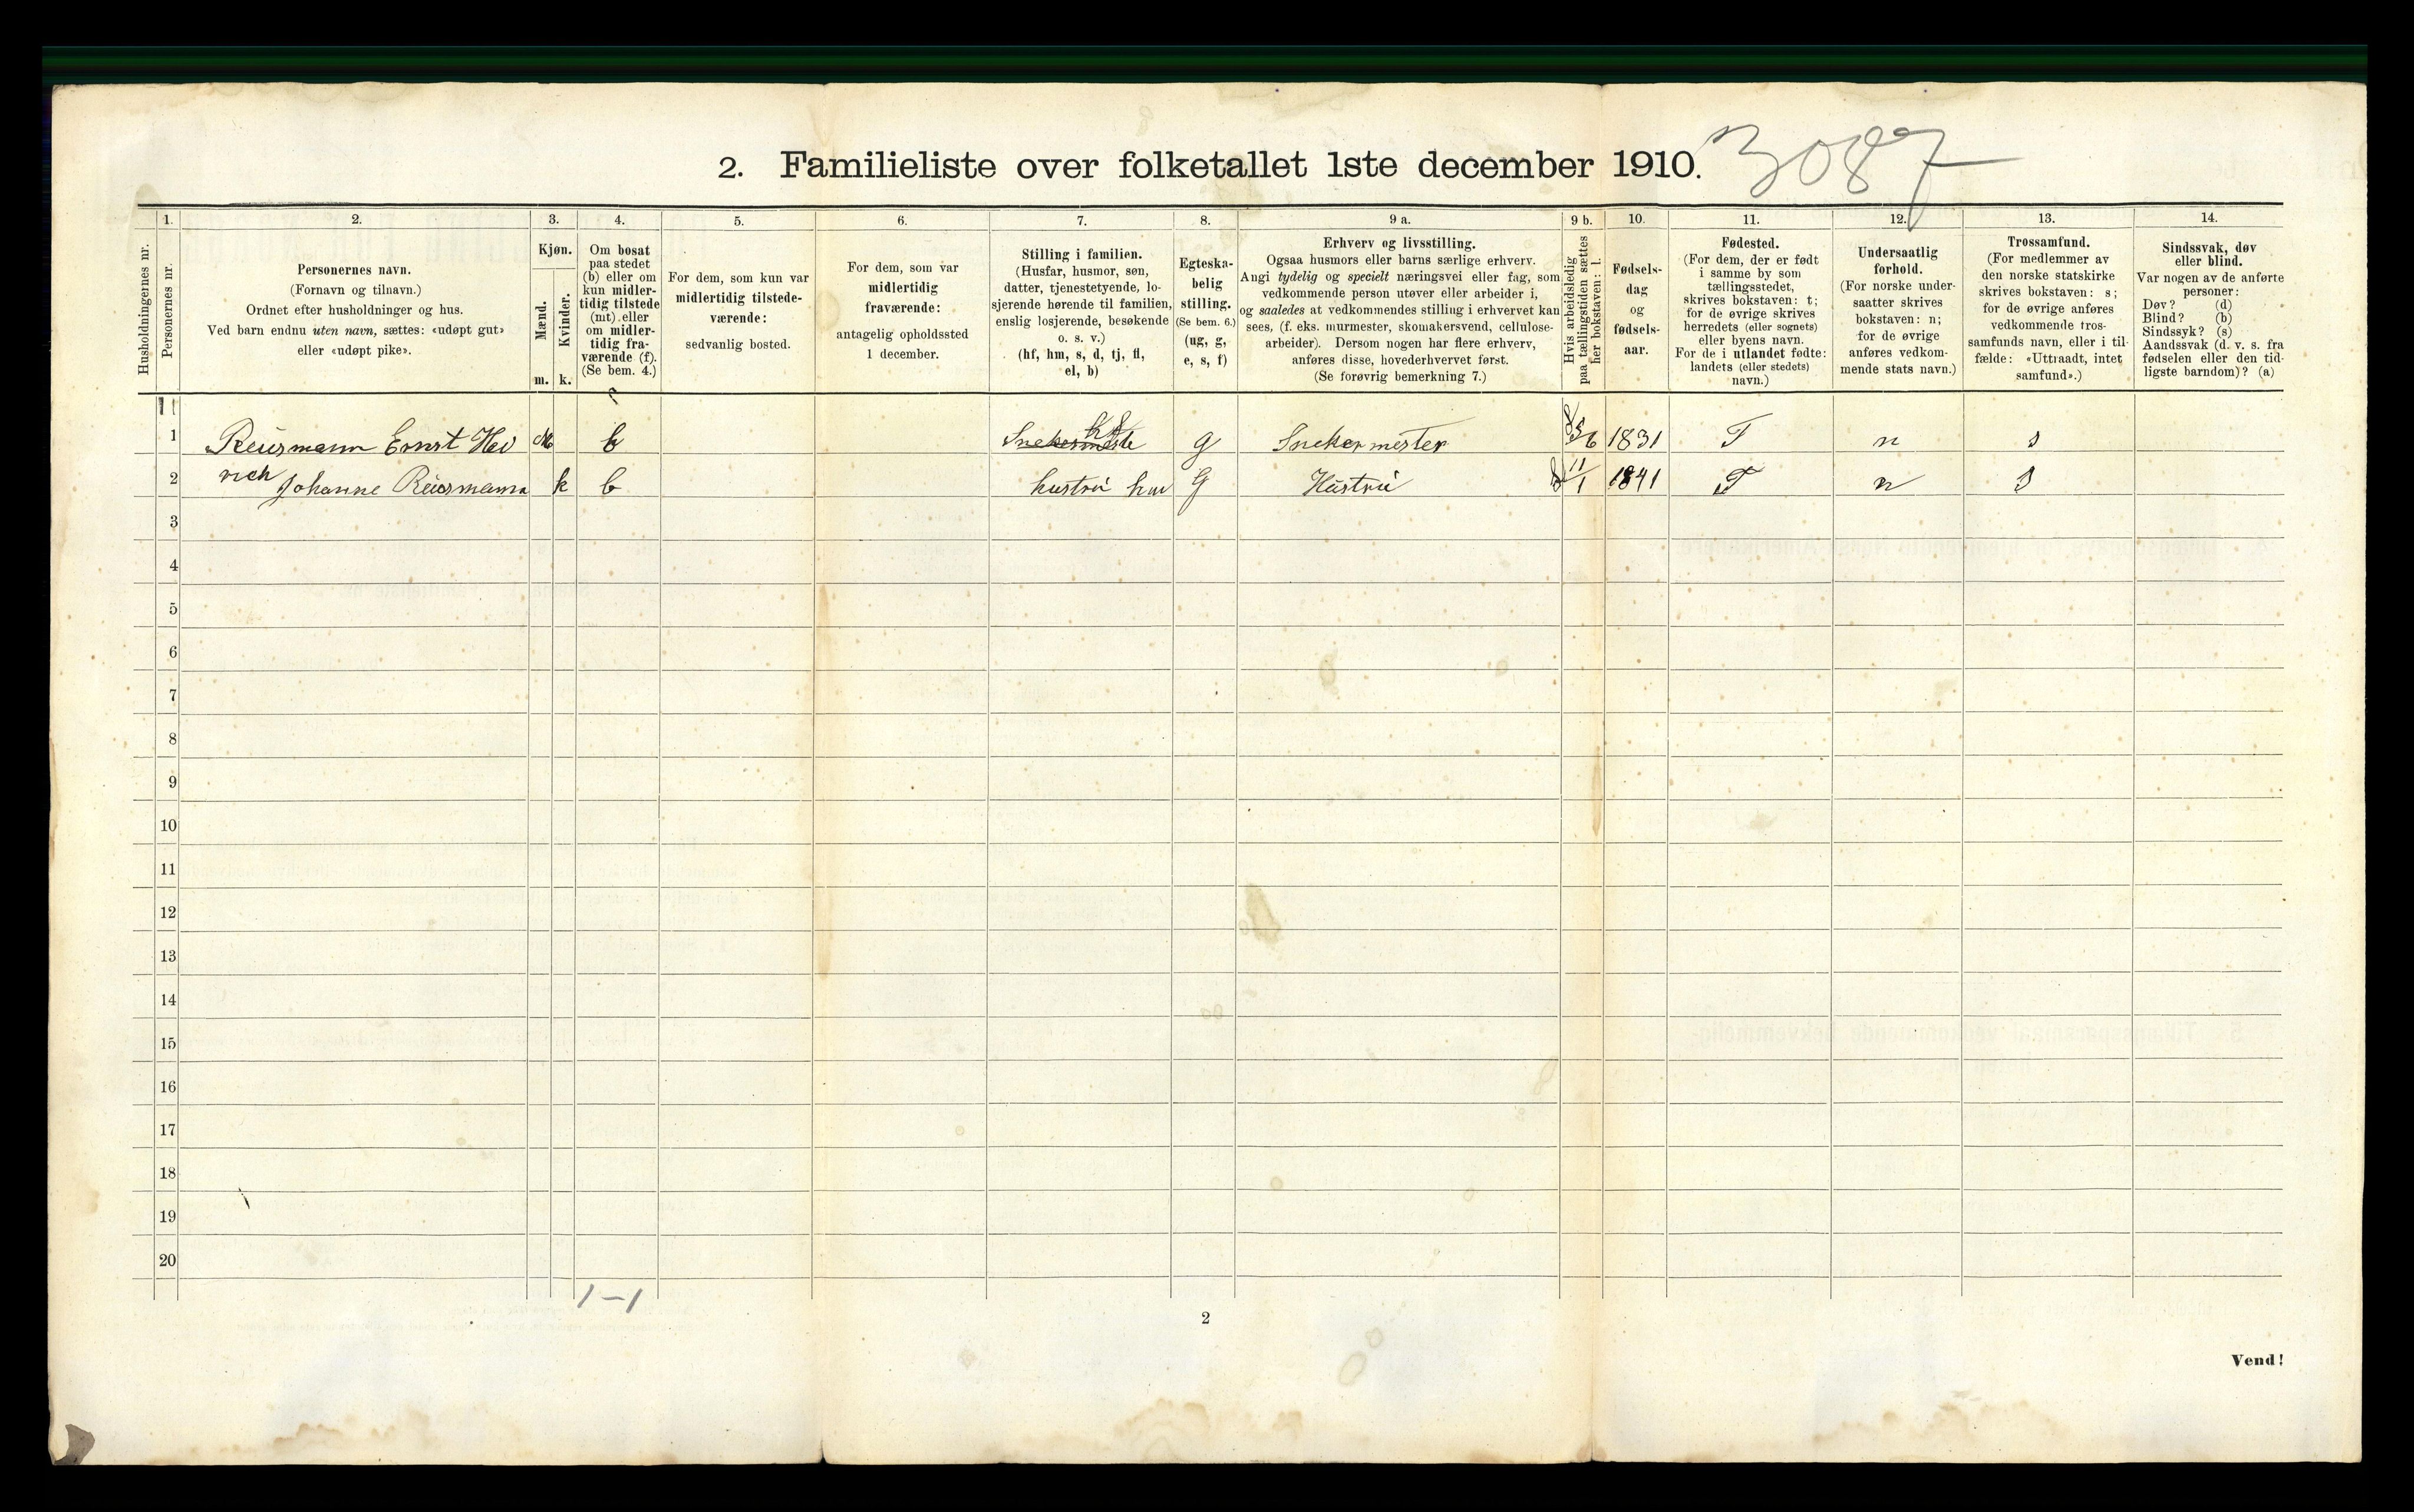 3087
2. Familieliste over folketallet 1ste december 1910.
1. 2. 3. 4. 5. 6. 7. 8. 9 a. 9 b. 10. 11. 12. 13. 14.
Husholdningernes nr.
Personernes nr.
Personernes navn.
(Fornavn og tilnavn.)
Ordnet efter husholdninger og hus.
Ved barn endnu uten navn, sættes: «udøpt gut»
eller «udøpt pike».
Kjøn.
Mænd.
Kvinder.
m. k.
Om bosat
paa stedet
(b) eller om
kun midler-
tidig tilstede
(mt) eller
om midler-
tidig fra-
værende (f).
(Se bem. 4.)
For dem, som kun var
midlertidig tilstede-
værende:
sedvanlig bosted.
For dem, som var
midlertidig
fraværende:
antagelig opholdssted
1 december.
Stilling i familien.
(Husfar, husmor, søn,
datter, tjenestetyende, lo-
sjerende hørende til familien,
enslig losjerende, besøkende
o. s. v.)
(hf, hm, s, d, tj, fl,
el, b)
Egteska-
belig
stilling.
(Se bem. 6.)
(ug, g,
e, s, f)
Erhverv og livsstilling.
Ogsaa husmors eller barns særlige erhverv.
Angi tydelig og specielt næringsvei eller fag, som
vedkommende person utøver eller arbeider i,
og saaledes at vedkommendes stilling i erhvervet kan
sees, (f. eks. murmester, skomakersvend, cellulose-
arbeider). Dersom nogen har flere erhverv,
anføres disse, hovederhvervet først.
(Se forøvrig bemerkning 7.)
Hvis arbeidsledig
paa tællingstiden sættes
her bokstaven: l.
Fødsels-
dag
og
fødsels-
aar.
Fødested.
(For dem, der er født
i samme by som
tællingsstedet,
skrives bokstaven: t;
for de øvrige skrives
herredets (eller sognets)
eller byens navn.
For de i utlandet fødte:
landets (eller stedets)
navn.)
Undersaatlig
forhold.
(For norske under-
saatter skrives
bokstaven: n;
for de øvrige
anføres vedkom-
mende stats navn.)
Trossamfund.
(For medlemmer av
den norske statskirke
skrives bokstaven: s;
for de øvrige anføres
vedkommende tros-
samfunds navn, eller i til-
fælde: «Uttraadt, intet
samfund».)
Sindssvak, døv
eller blind.
Var nogen av de anførte
personer:
Døv? (d)
Blind? (b)
Sindssyk? (s)
Aandssvak (d. v. s. fra
fødselen eller den tid-
ligste barndom)? (a)
hf
1 Reusmann Ernst Hei M b Snekermeste g Snekermester 1831 T n s
rich
2 Johanne Reusmann k b hustru hm G Hustru 11/1 1841 T n s
3
4
5
6
7
8
9
10
11
12
13
14
15
16
17
18
19
20
1-1
2
Vend!